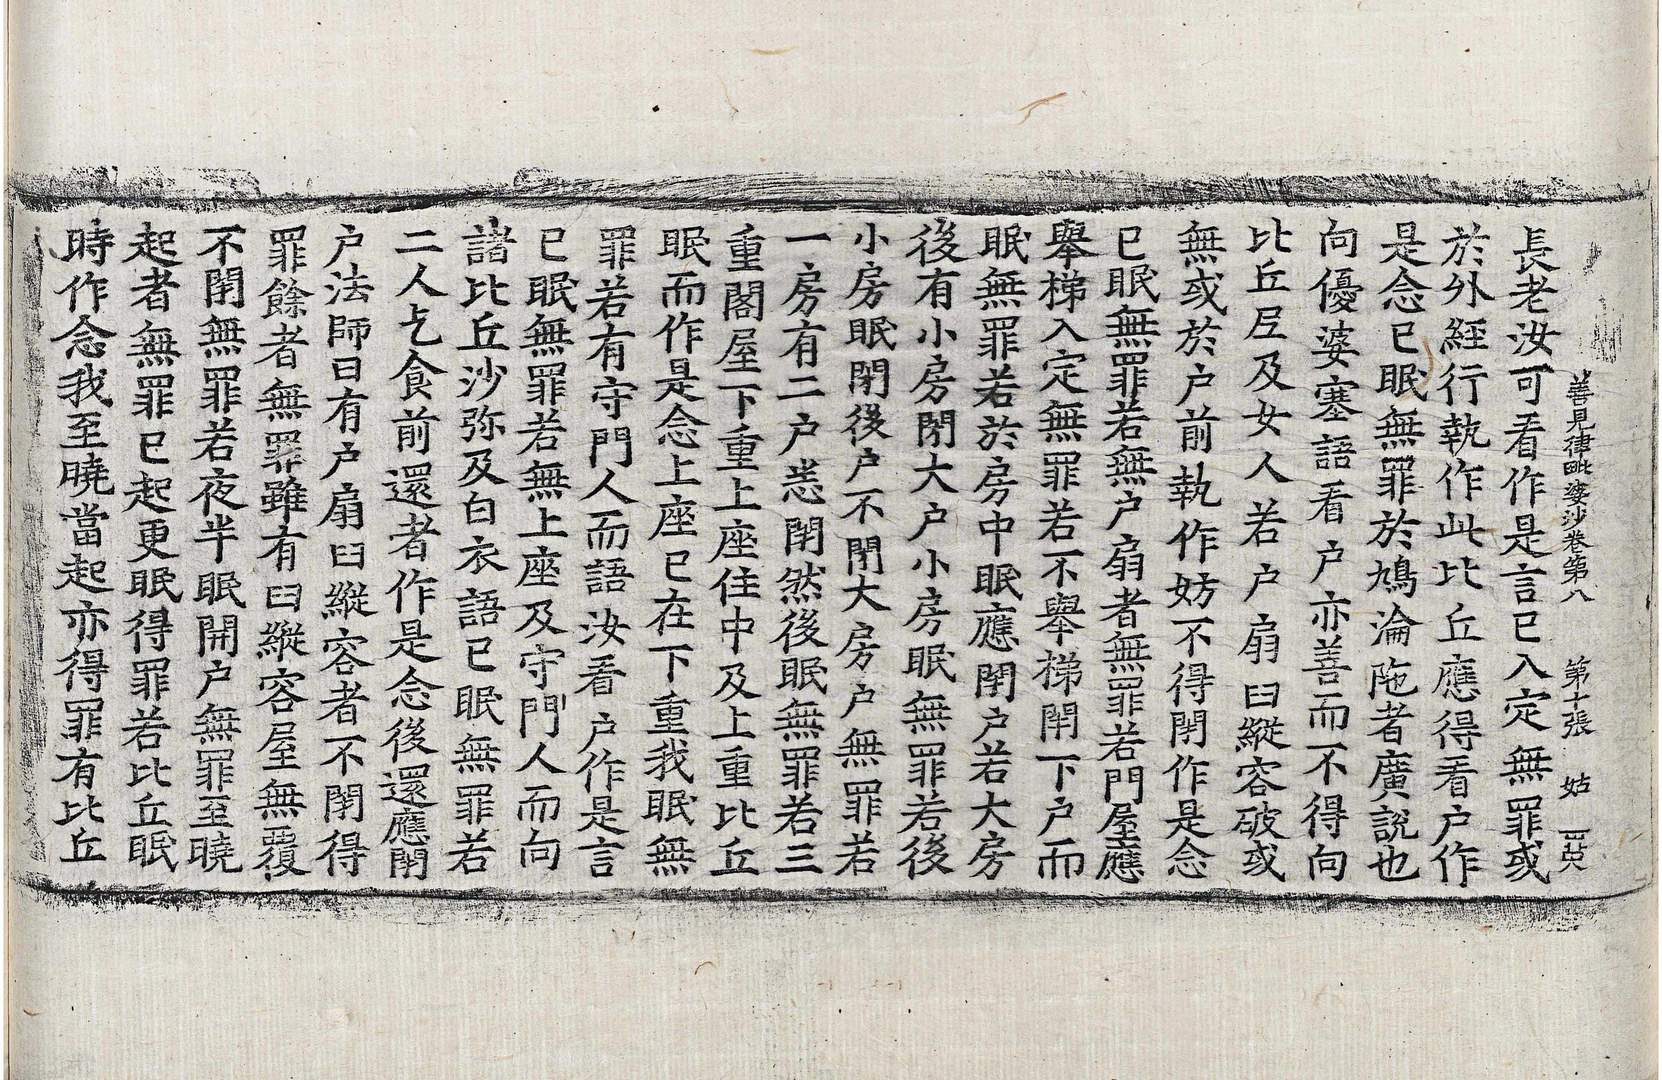 善見律毗婆沙卷第八　第十張　姑
長老汝可看作是言已入定無罪或
於外經行執作此比丘應得看户作
是念已眠無罪於鳩淪陁者廣說也
向優婆塞語看户亦善而不得向
比丘尼及女人若户扇臼縱容破或
無或於户前執作妨不得閇作是念
已眠無罪若無户扇者無罪若門屋應
舉梯入定無罪若不舉梯閇下户而
眠無罪若於房中眠應閇户若大房
後有小房閇大户小房眠無罪若後
小房眠閇後户不閇大房户無罪若
一房有二户悉閇然後眠無罪若三
重閣屋下重上座住中及上重比丘
眠而作是念上座已在下重我眠無
罪若有守門人而語汝看户作是言
已眠無罪若無上座及守門人而向
諸比丘沙弥及白衣語已眠無罪若
二人乞食前還者作是念後還應閇
户法師曰有户扇臼縱容者不閇得
罪餘者無罪雖有臼縱容屋無覆
不閇無罪若夜半眠開户無罪至曉
起者無罪已起更眠得罪若比丘眠
時作念我至曉當起亦得罪有比丘